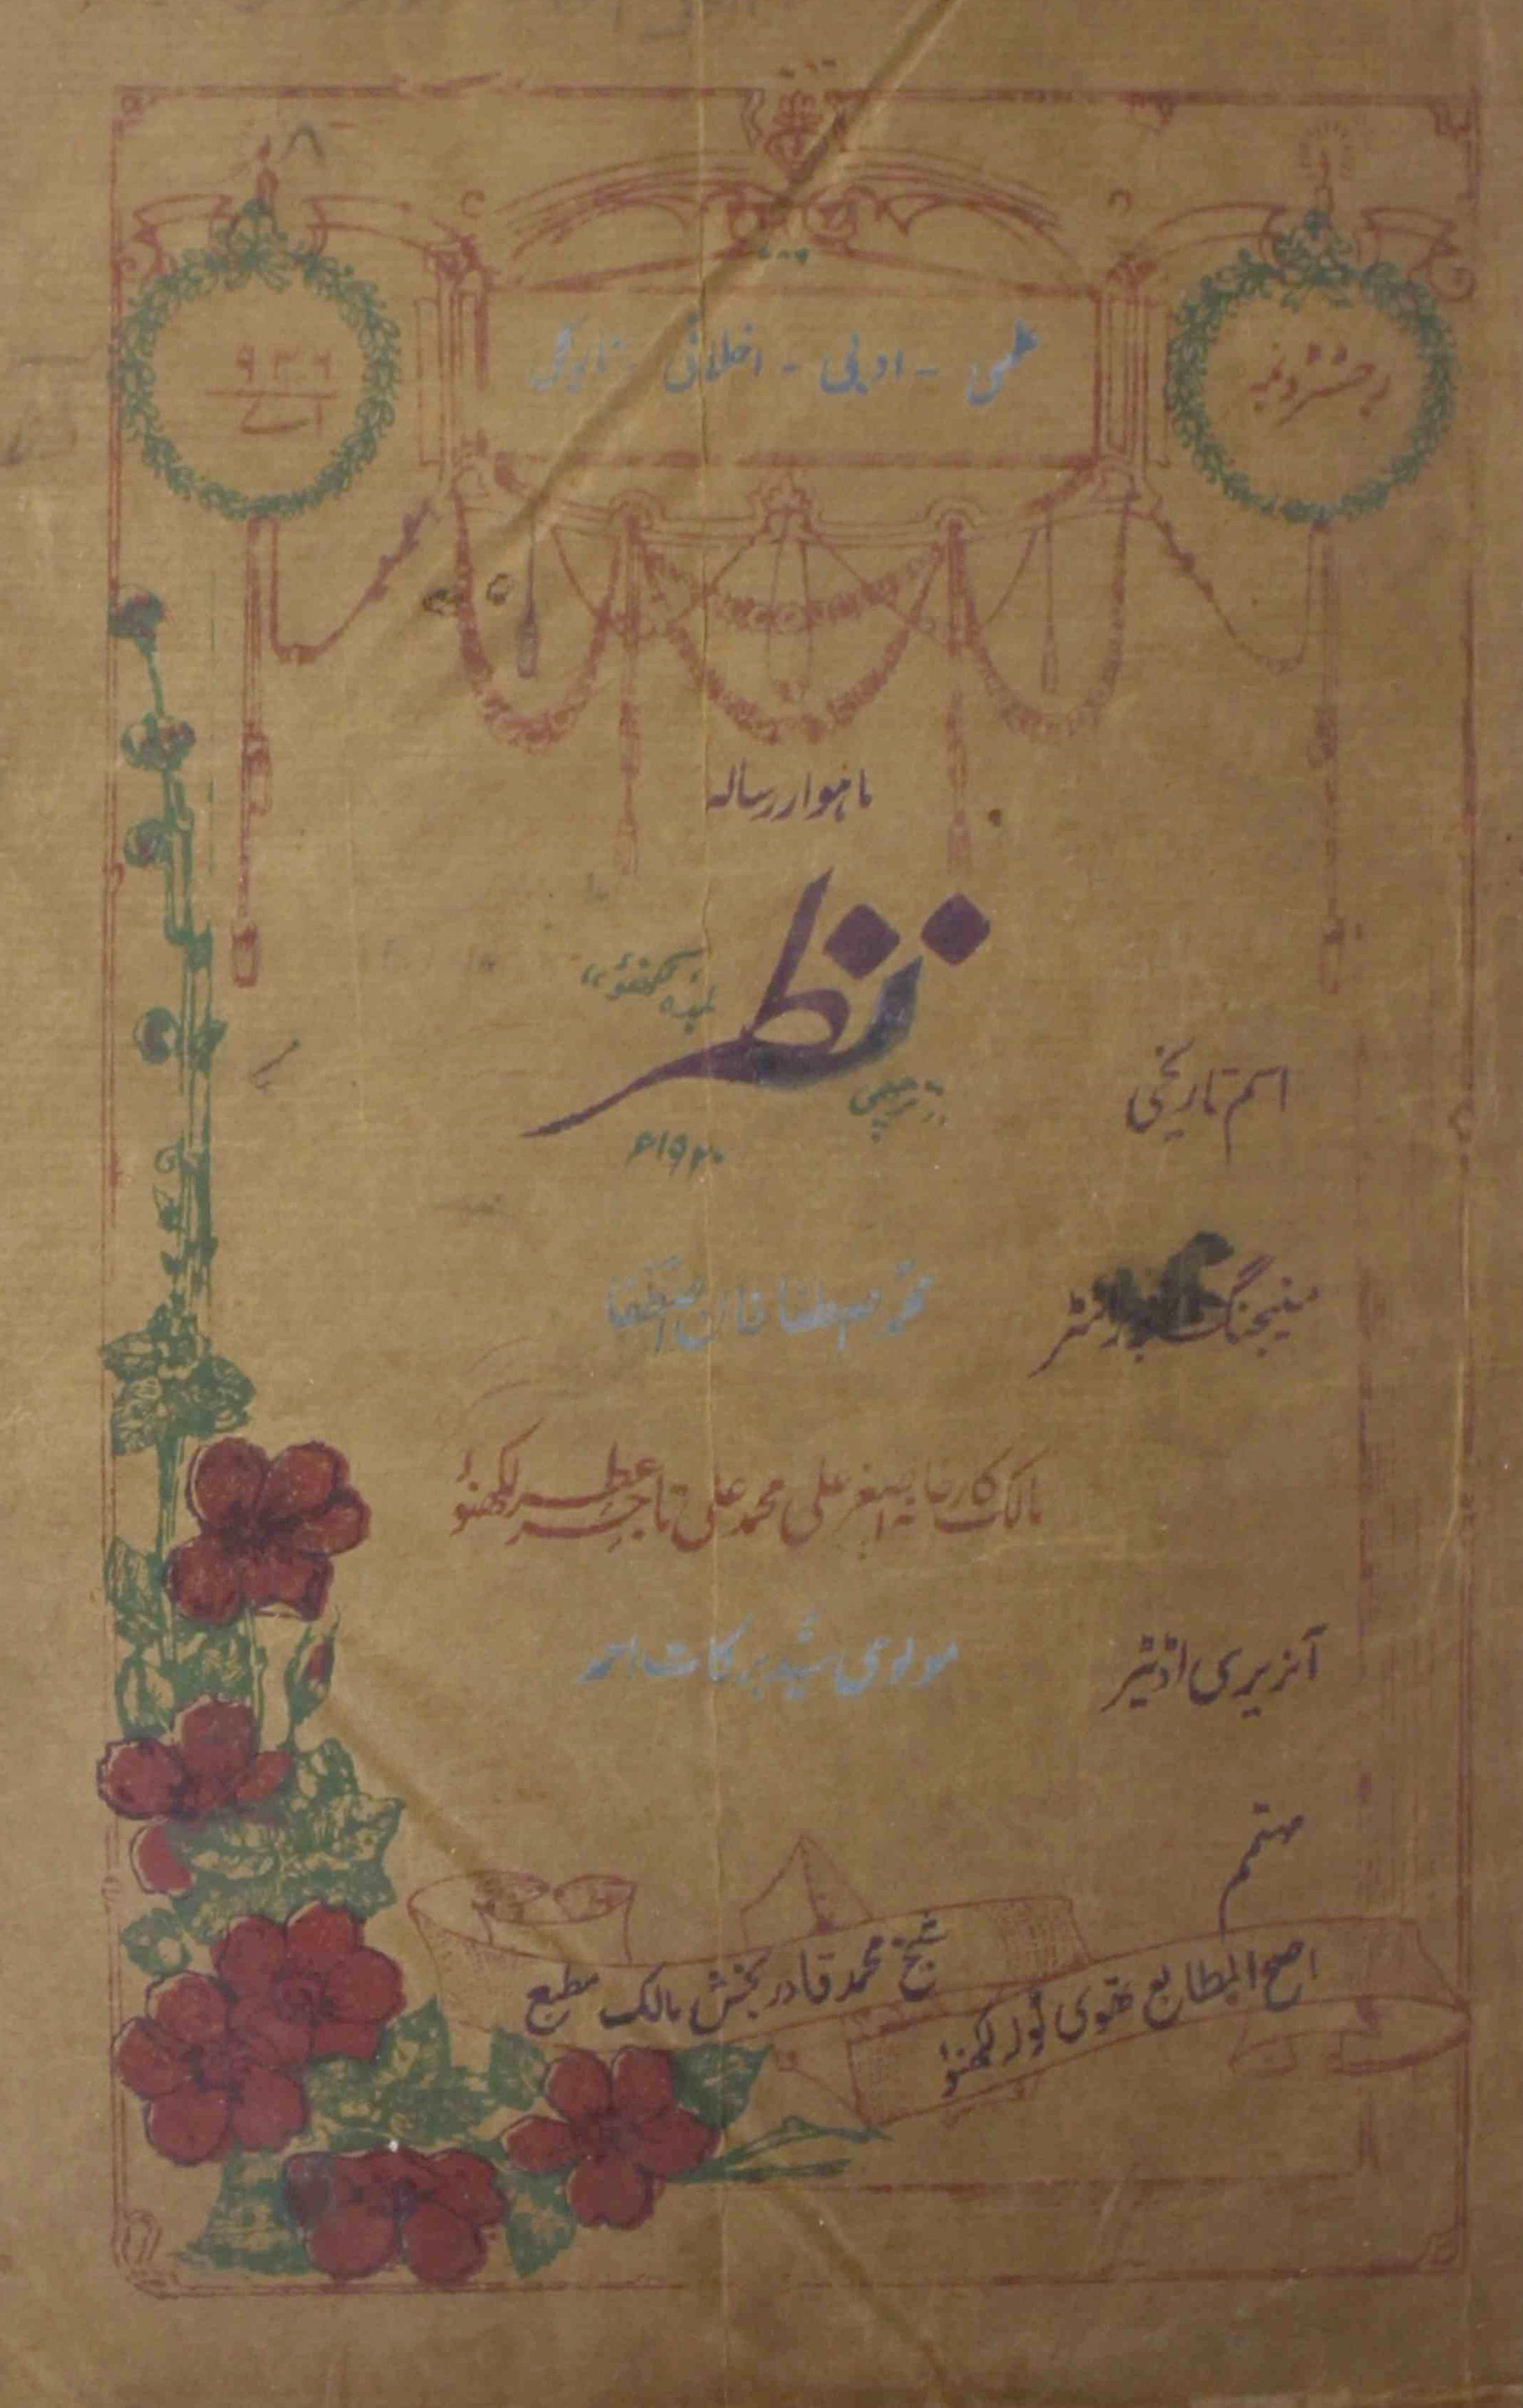 رجسٹرڈ نمبر
اے ۹۳۶
علمی - ادبی - اخلاقی - تاریخی
ماہوار رسالہ
نظر
لکھنؤ
۱۹۲۰ء
اسم تاریخی
منیجنگ
محمد مصطفےٰ خان
مالک کارخانہ اصغر علی محمد علی تاجر عطر لکھنؤ
آنریری اڈیٹر
مولوی سید برکات احمد
مہتمم
شیخ محمد قادر بخش مالک مطبع
اصح المطابع تھوی ٹولہ لکھنؤ